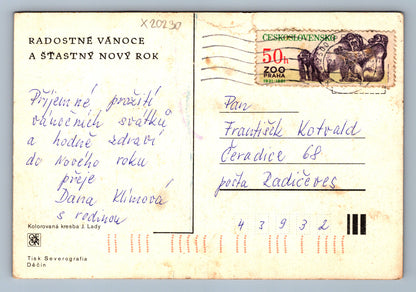 X20230
RADOSTNÉ VÁNOCE
A ŠŤASTNÝ NOVÝ ROK
Příjemné prožití
vánočních svátků
a hodně zdraví
do Nového roku
přeje
Dana Klímová
s rodinou
Kolorovaná kresba J. Lady
Tisk Severografia
Děčín
ČESKOSLOVENSKO
50h
ZOO
PRAHA
1931-1981
Pan
František Kotvald
Čeradice 68
pošta Radičeves
43932